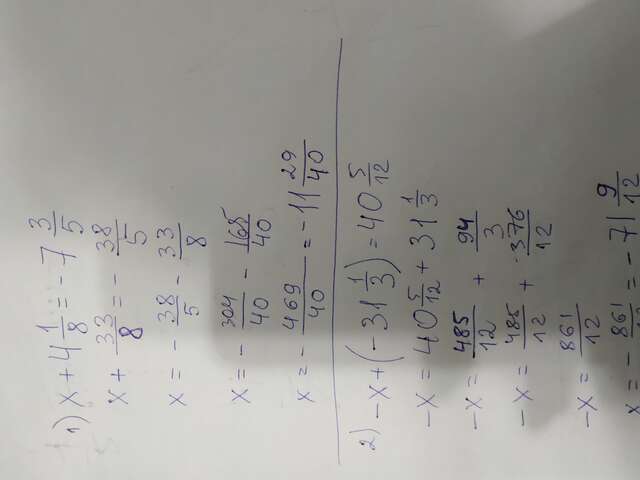 1) x + 4 1/8 = - 7 3/5
x + 33/8 = - 38/5
x = - 38/5 - 33/8
x = - 304/40 - 165/40
x = - 469/40 = - 11 29/40
2) -x + (- 31 1/3) = 40 5/12
-x = 40 5/12 + 31 1/3
-x = 485/12 + 94/3
-x = 485/12 + 376/12
-x = 861/12
x = - 861/12 = - 71 9/12